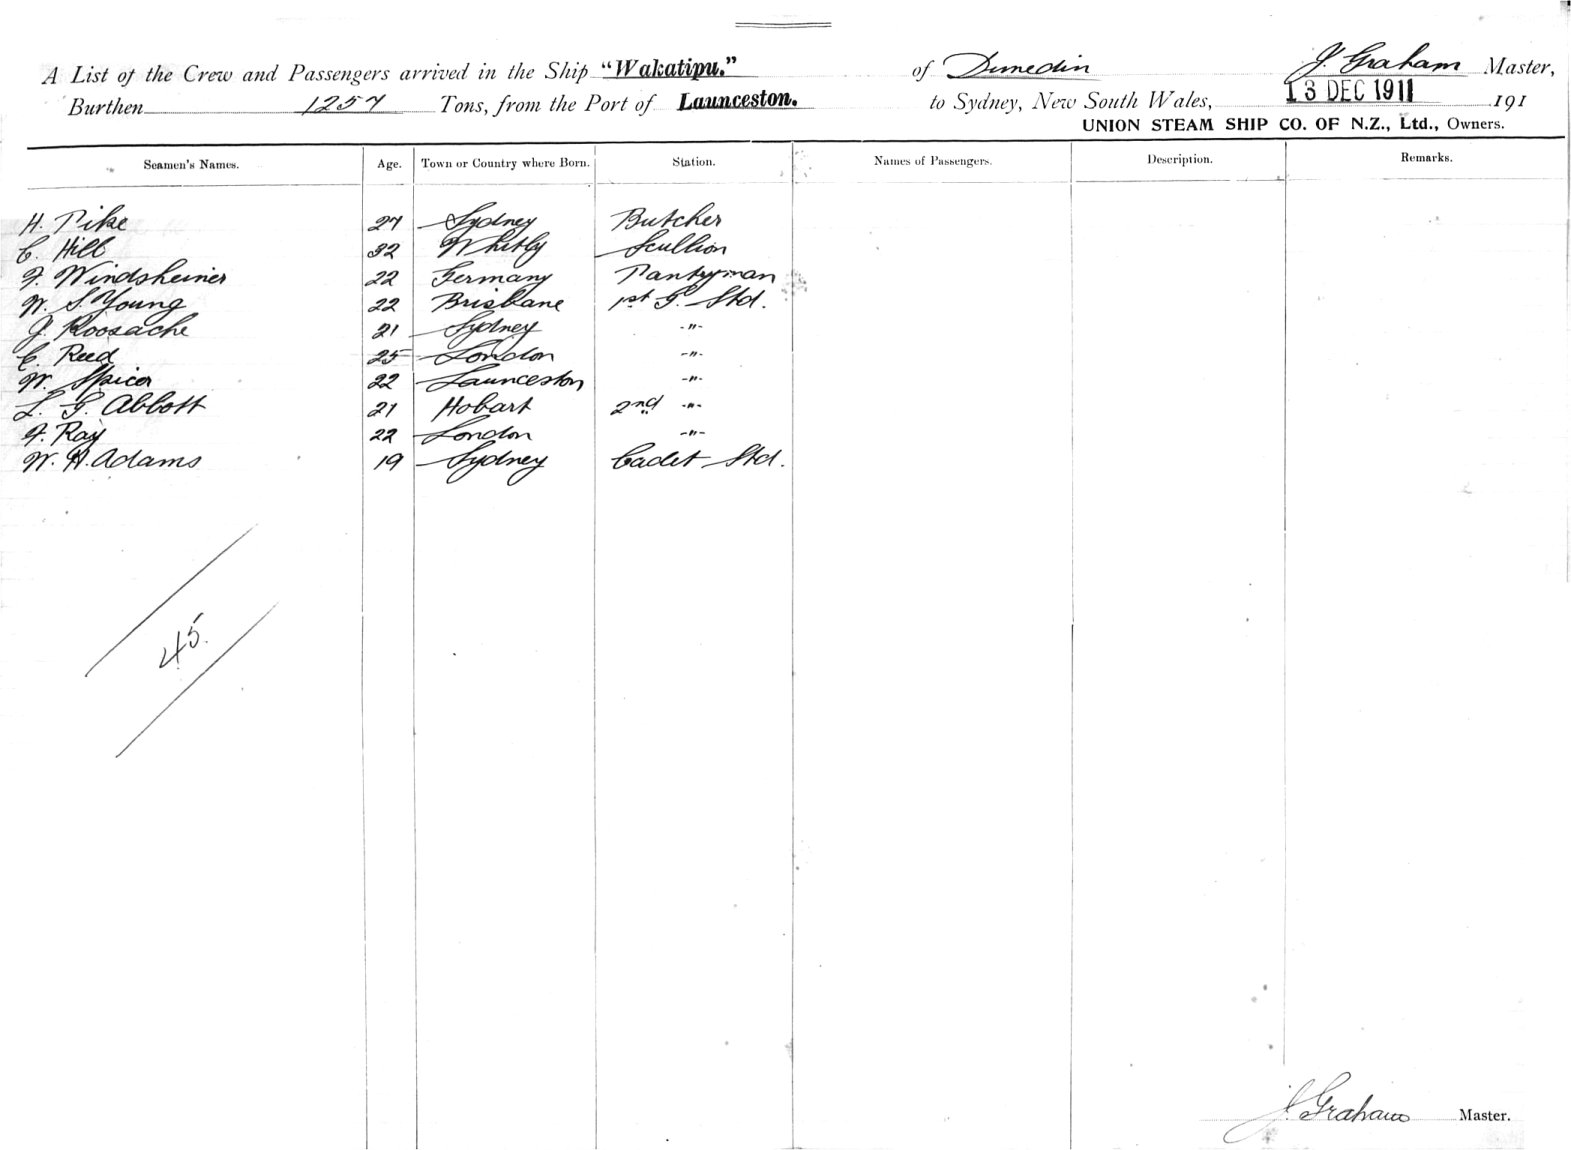 A List of the Crew and Passengers arrived in the Ship "Wakatipu." of Dunedin J. Graham Master,
Burthen 1257 Tons, from the Port of Launceston. to Sydney, New South Wales, 13 DEC 1911 191
UNION STEAM SHIP CO. OF N.Z., Ltd., Owners.
Seamen's Names. Age. Town or Country where Born. Station. Names of Passengers. Description. Remarks.
H. Pike 27 Sydney Butcher
C. Hill 32 Whitby Scullion
F. Windsheiner 22 Germany Pantryman
W. S. Young 22 Brisbane 1st G. Std.
J. Roosache 21 Sydney -"-
C. Reed 25 London -"-
W. Spicer 22 Launceston -"-
L. G. Abbott 21 Hobart 2nd -"-
F. Ray 22 London -"-
W. H. Adams 19 Sydney Cadet Std.
45.
J. Graham Master.